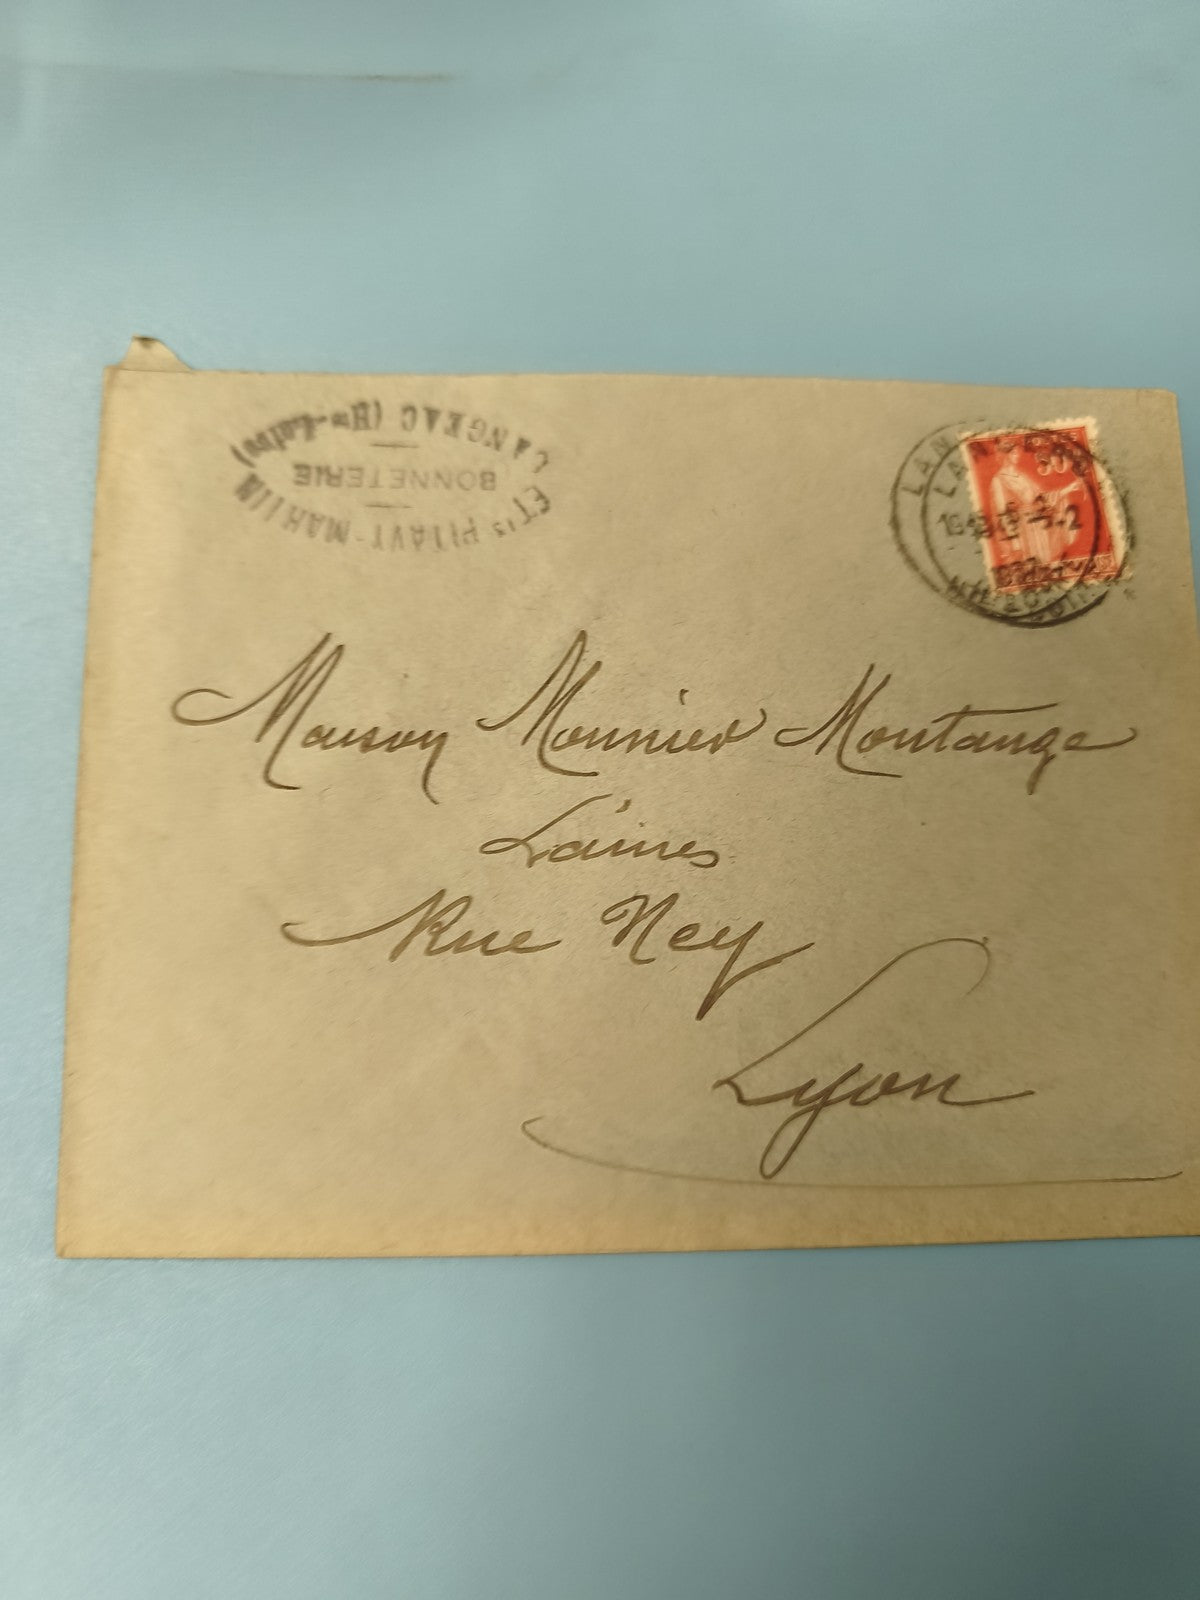 ETˢ PITAVY-MARTIN
BONNETERIE
LANGEAC (Hᵗᵉ-Loire)
LANGEAC
50
Maison Monnier Montange
Laines
Rue Ney
Lyon